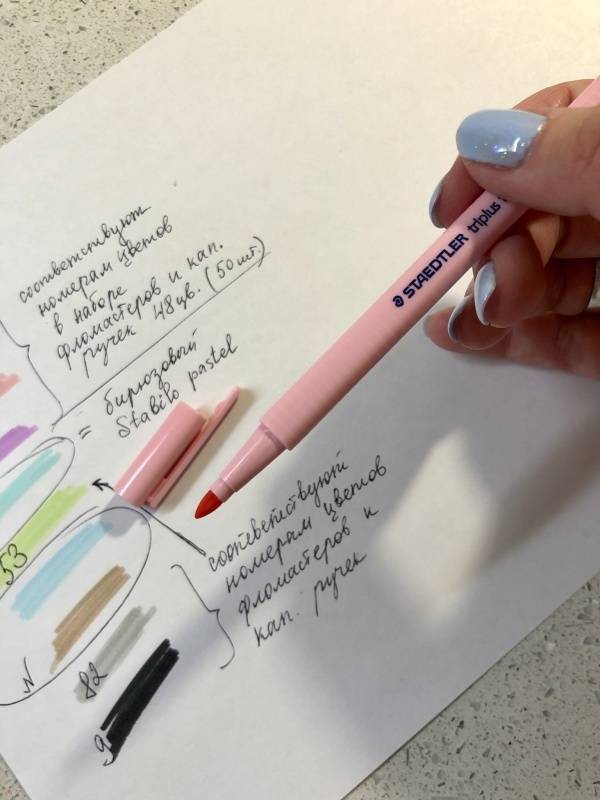 соответствуют
номерам цветов
в наборе
фломастеров и кап.
ручек 48цв. (50 шт.)
= бирюзовый
Stabilo pastel
STAEDTLER triplus
соответствуют
номерам цветов
фломастеров и
кап. ручек
53
N
82
9